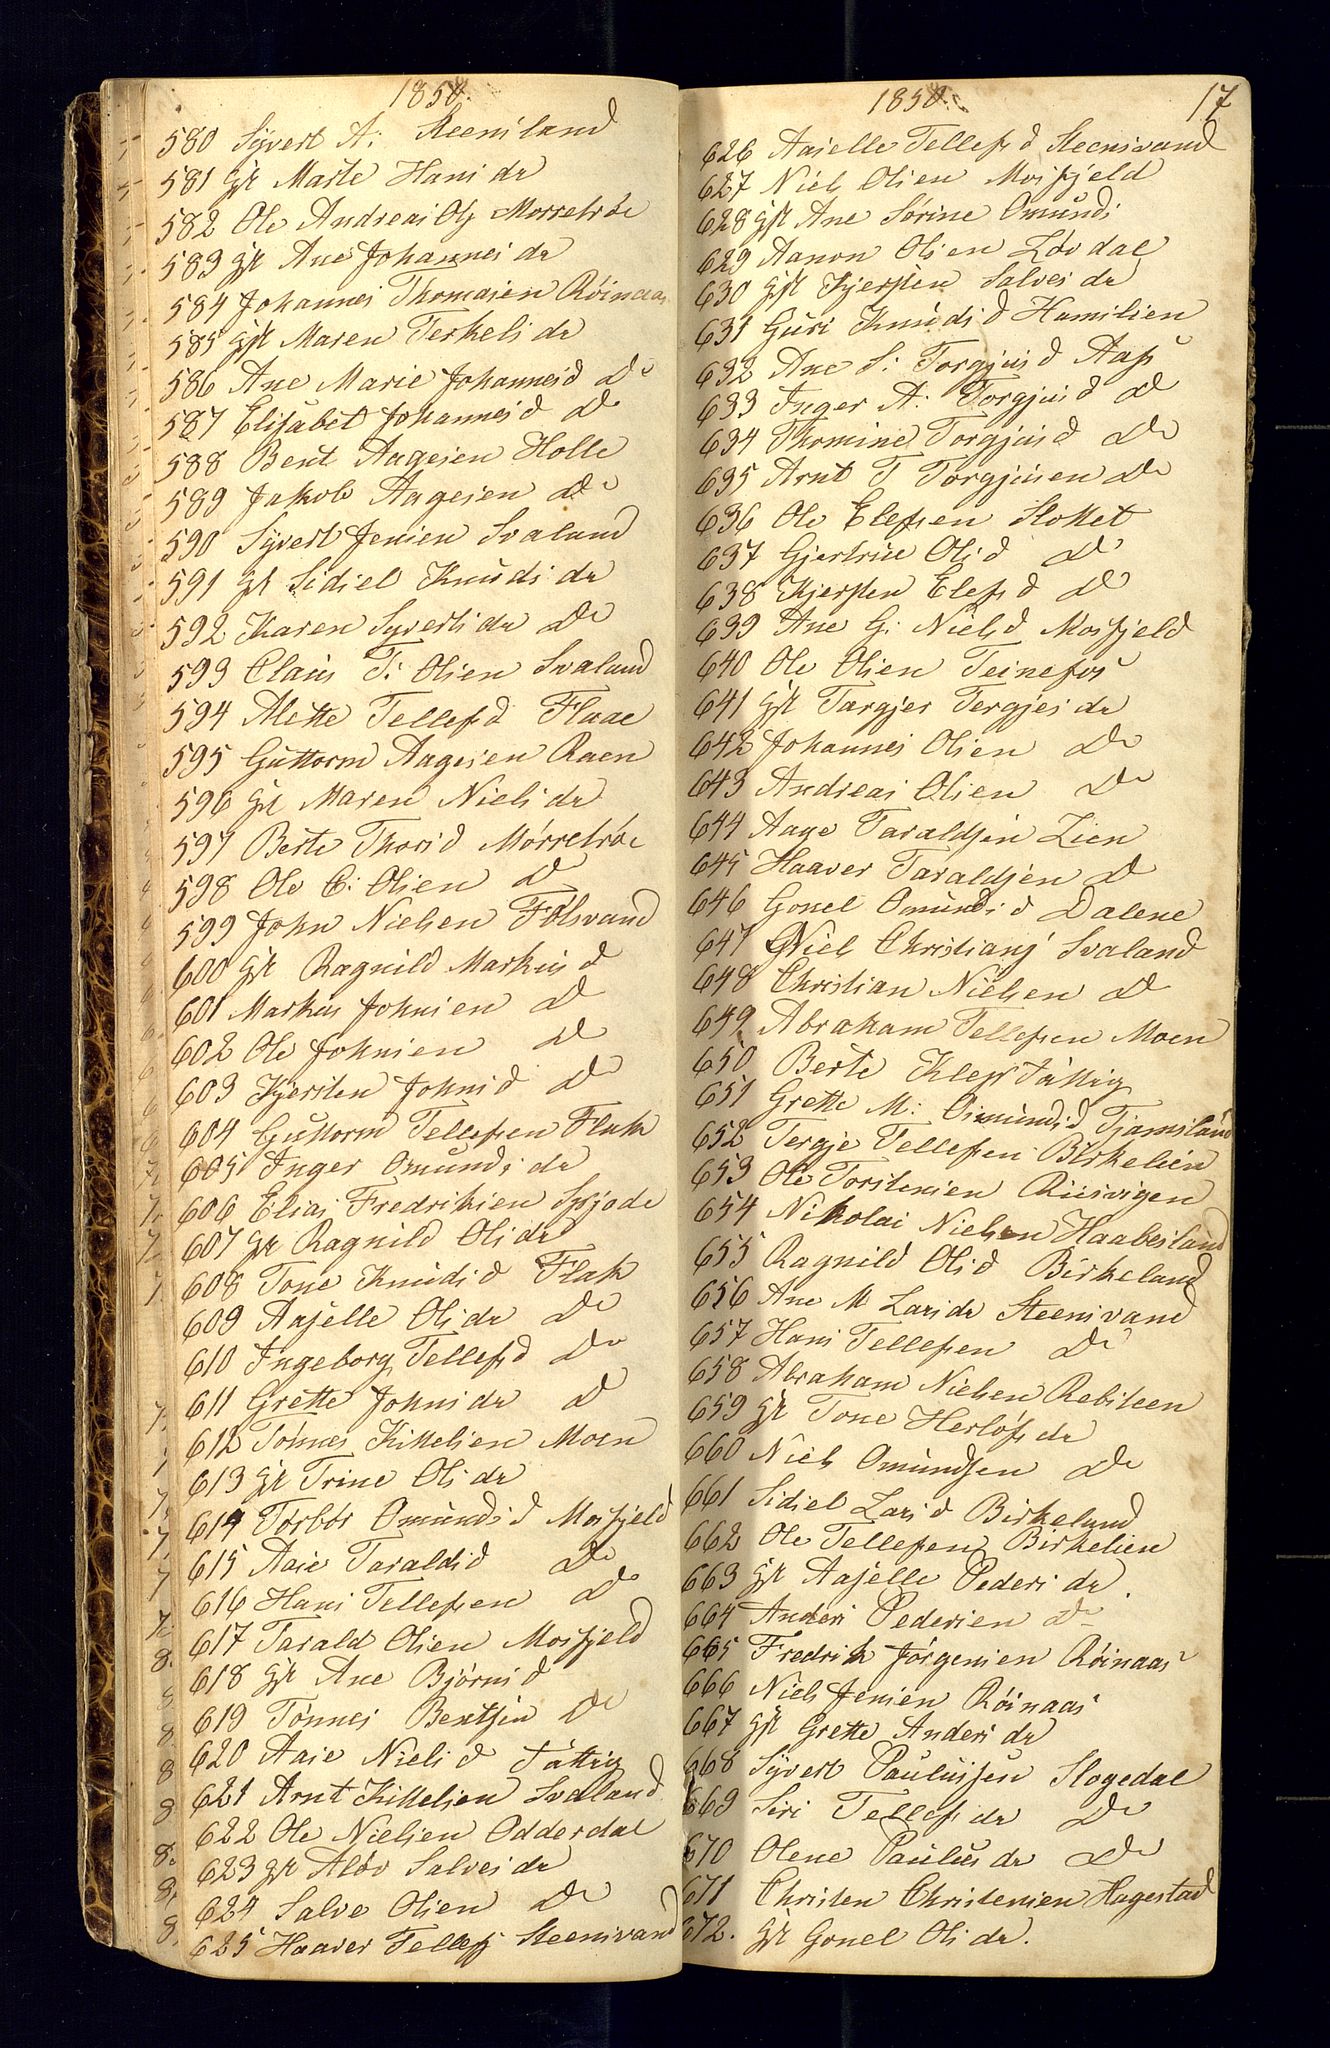 1850.
580 Syvert A: Steensland
581 gft Marte Hans dr
582 Ole Andreas Ols Mørretrøe
583 gft Ane Johannes dr
584 Johannes Thomasen Røinaas
585 gft Maren Terkels dr
586 Ane Marie Johannesd Do
587 Elisabet Johannesd Do
588 Bent Aagesen Holle
589 Jakob Aagesen Do
590 Syvert Jensen Svaland
591 gft Sidsel Knuds dr
592 Karen Syverts dr Do
593 Claus T: Olsen Svaland
594 Alette Tellefsd Flaae
595 Guttorm Aagesen Raen
596 gft Maren Niels dr
597 Berte Thorsd Mørretrøe
598 Ole C: Olsen Do
599 John Nielsen Fölsvand
600 gft Ragnild Markusd
601 Markus Johnsen Do
602 Ole Johnsen Do
603 Kjersten Johnsd Do
604 Guttorm Tellefsen Flak
605 Inger Omunds dr
606 Elias Fredriksen
607 gft Ragnild Ols dr
608 Tone Knudsd Flak
609 Aaselle Ols dr Do
610 Ingeborg Tellefsd Do
611 Grette Johns dr Do
612 Tönnes Kittelsen Moen
613 gft Trine Ols dr
614 Torbör Omundsd Mosfjeld
615 Aase Taraldsd Do
616 Hans Tellefsen Do
617 Tarald Olsen Mosfjeld
618 gft Ane Bjørnsd
619 Tönnes Bentsen Do
620 Aase Nielsd Tattig
621 Arnt Kittelsen Svaland
622 Ole Nielsen Odderdal
623 gft Aløv Salves dr
624 Salve Olsen Do
625 Haaver Tellefs Steensvand
1850. 17
626 Aaselle Tellefsd Steensvand
627 Niels Olsen Mosfjeld
628 gft Ane Sörine Omunds
629 Aanon Olsen Løvdal
630 gft Kjersten Salves dr
631 Guri Knudsd Hamilien
632 Ane S: Torgjusd Aas
633 Inger A: Torgjusd Do
634 Thomine Torgjusd Do
635 Arnt T Torgjusen Do
636 Ole Elefsen Slottet
637 Gjertrue Olsd Do
638 Kjersten Elefsd Do
639 Ane G: Nielsd Mosfjeld
640 Ole Olsen Teinefos
641 gft Targjer Tergjes dr
642 Johannes Olsen Do
643 Andreas Olsen Do
644 Aage Taraldsen Lien
645 Haaver Taraldsen Do
646 Gonel Omundsd Dalene
647 Niels Christians Svaland
648 Christian Nielsen Do
649 Abraham Tellefsen Moen
650 Berte Tattig
651 Grette M: Osmundsd Tjamsland
652 Tergje Tellefsen Birkelien
653 Ole Torstensen Riisvigen
654 Nikolai Nielsen Haabesland
655 Ragnild Olsd Birkeland
656 Ane M Lars dr Steensvand
657 Hans Tellefsen Do
658 Abraham Nielsen Rebsteen
659 gft Tone Herlofs dr
660 Niels Omundsen Do
661 Sidsel Larsd Birkeland
662 Ole Tellefsen Birkelien
663 gft Aaselle Peders dr
664 Anders Pedersen Do
665 Fredrik Jørgensen Røinaas
666 Niels Jensen Røinaas
667 gft Grette Anders dr
668 Syvert Paulussen Slogedal
669 Siri Tellefs dr Do
670 Olene Paulus dr Do
671 Christen Christensen Hagestad
672. gft Gonel Ols dr.